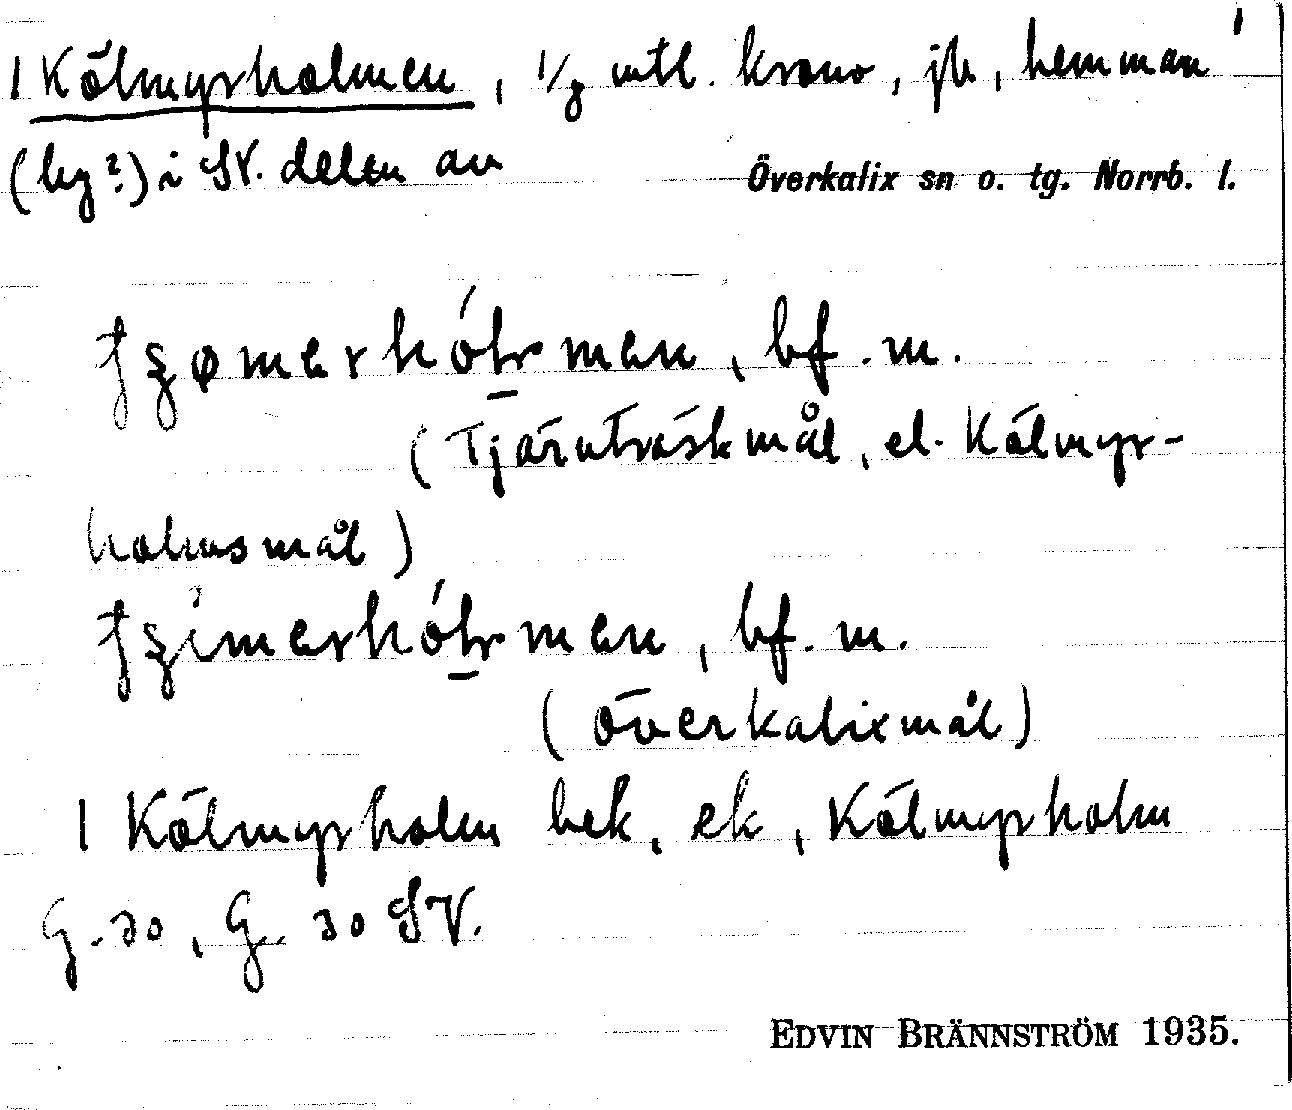 1 Kölmyrholmen, 1/8 mtl. krono, jb, hemman
(by?) i SV. delen av
Överkalix sn o. tg. Norrb. l.
bf. m.
(Tjäruträskmål, el. Kölmyr-
holmsmål)
bf. m.
(överkalixmål)
1 Kölmyrholm bek, ek, Kölmyrholm
G. 30, G. 30 SV.
EDVIN BRÄNNSTRÖM 1935.